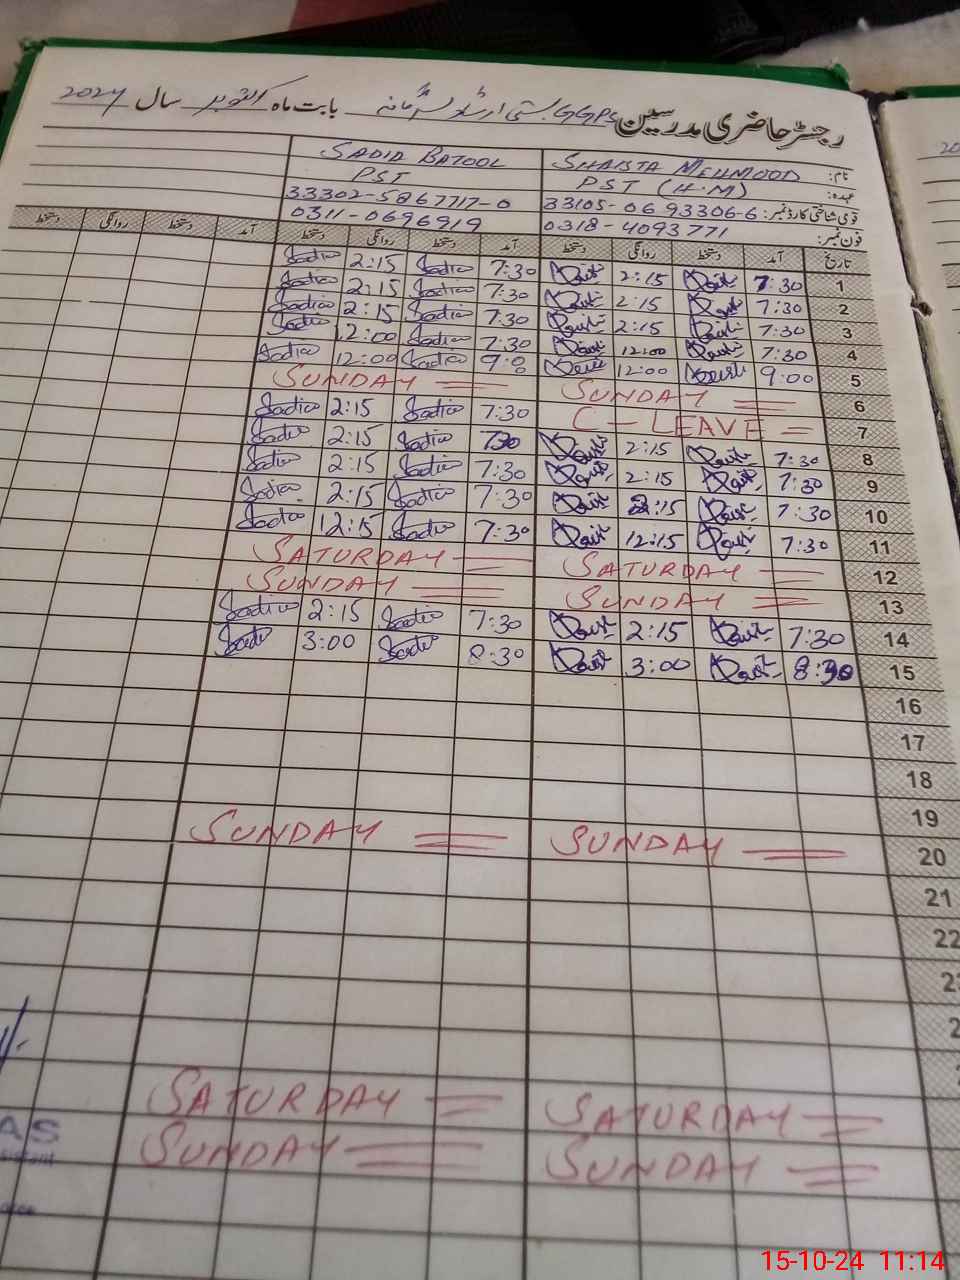 رجسٹر حاضری مدرسین GGPS بستی بابت ماہ اکتوبر سال 2024
نام: SHAISTA MEHMOOD SADIA BATOOL
عہدہ: PST (H.M) PST
قومی شناختی کارڈ نمبر: 33105-0693306-6 33302-5867717-0
فون نمبر: 0318-4093771 0311-0696919
تاریخ آمد دستخط روانگی دستخط آمد دستخط روانگی دستخط آمد دستخط روانگی دستخط
1 7:30 2:15 7:30 Sadia 2:15 Sadia
2 7:30 2:15 7:30 Sadia 2:15 Sadia
3 7:30 2:15 7:30 Sadia 2:15 Sadia
4 7:30 12:00 7:30 Sadia 12:00 Sadia
5 9:00 12:00 9:0 Sadia 12:00 Sadia
6 SUNDAY SUNDAY
7 C-LEAVE 7:30 Sadia 2:15 Sadia
8 7:30 2:15 730 Sadia 2:15 Sadia
9 7:30 2:15 7:30 Sadia 2:15 Sadia
10 7:30 2:15 7:30 Sadia 2:15 Sadia
11 7:30 12:15 7:30 Sadia 12:15 Sadia
12 SATURDAY SATURDAY
13 SUNDAY SUNDAY
14 7:30 2:15 7:30 Sadia 2:15 Sadia
15 8:30 3:00 8:30 Sadia 3:00 Sadia
16
17
18
19
20 SUNDAY SUNDAY
21
22
SATURDAY SATURDAY
SUNDAY SUNDAY
15-10-24 11:14